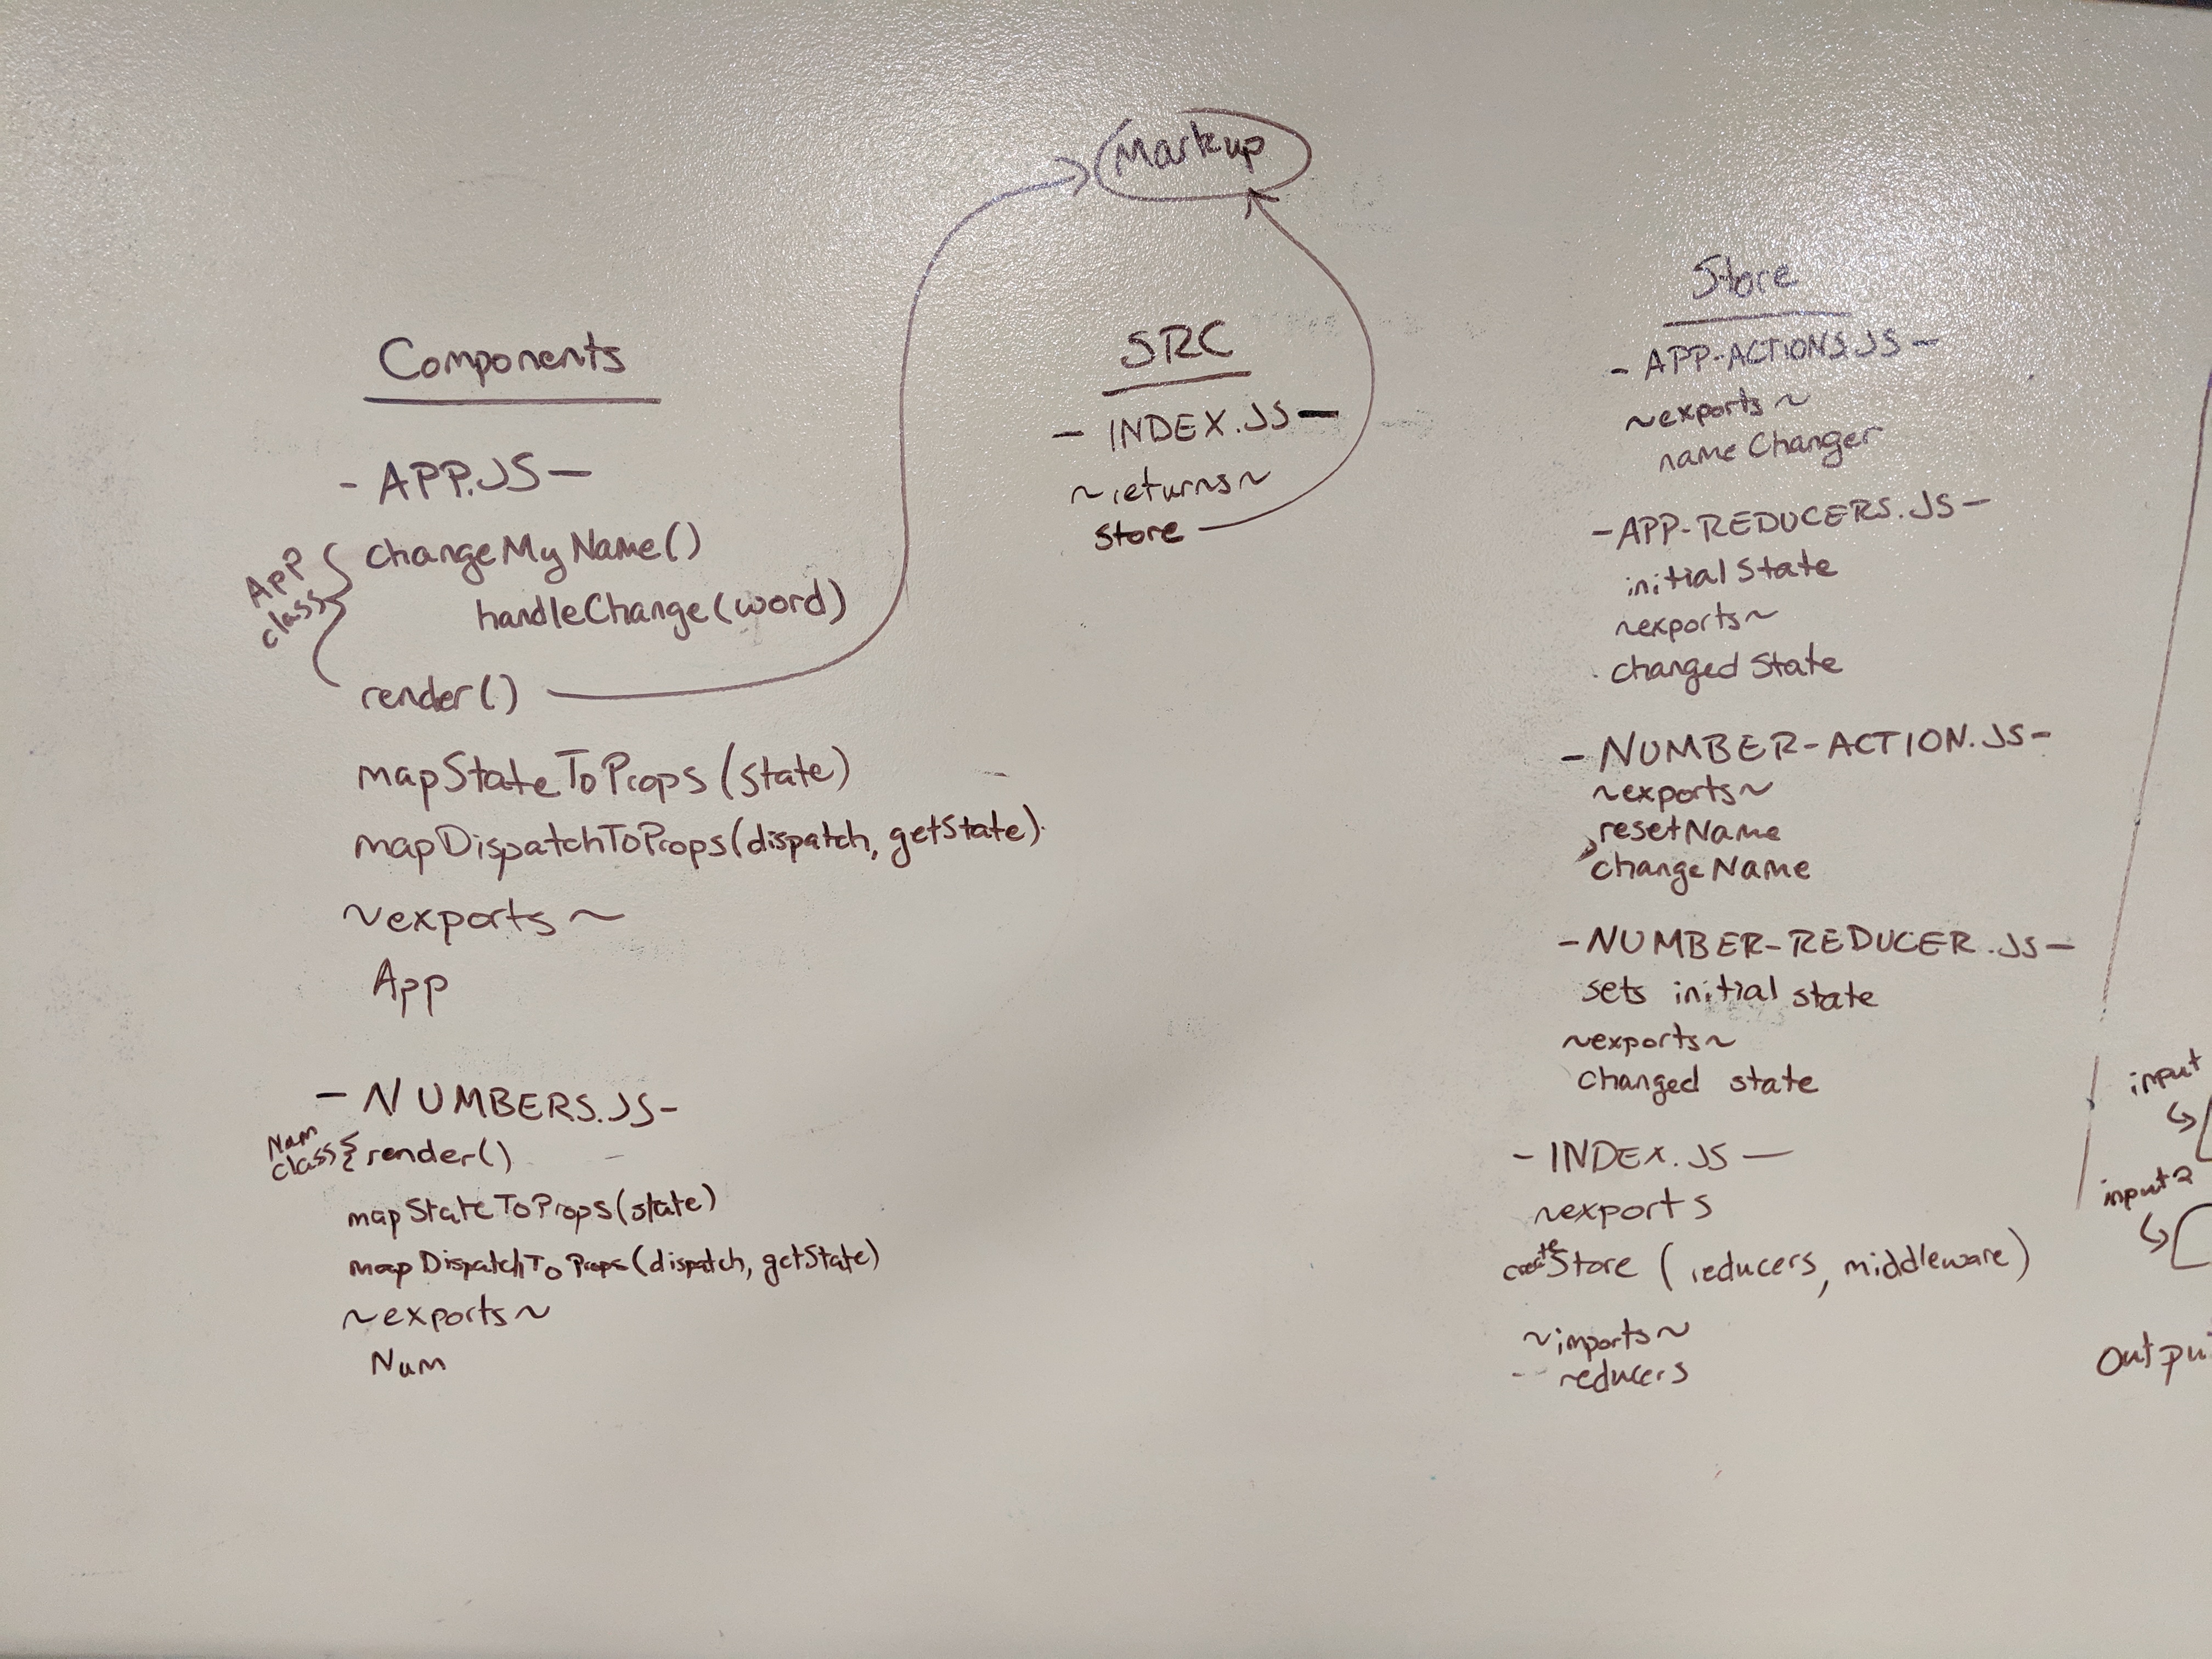 Markup
Components
- APP.JS -
App
class
changeMyName()
handleChange(word)
render()
mapStateToProps(state)
mapDispatchToProps(dispatch, getState)
~exports~
App
- NUMBERS.JS-
Num
class
render()
mapStateToProps(state)
mapDispatchToProps(dispatch, getState)
~exports~
Num
SRC
- INDEX.JS -
~returns~
store
Store
- APP-ACTIONS.JS -
~exports~
nameChanger
-APP-REDUCERS.JS-
initialState
~exports~
changedState
- NUMBER-ACTION.JS-
~exports~
resetName
changeName
-NUMBER-REDUCER.JS-
sets initial state
~exports~
changed state
- INDEX.JS -
~exports
createStore (reducers, middleware)
~imports~
reducers
input
input2